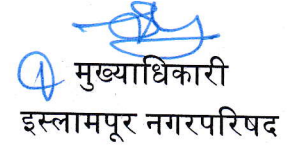 मुख्याधिकारी
इस्लामपूर नगरपरिषद